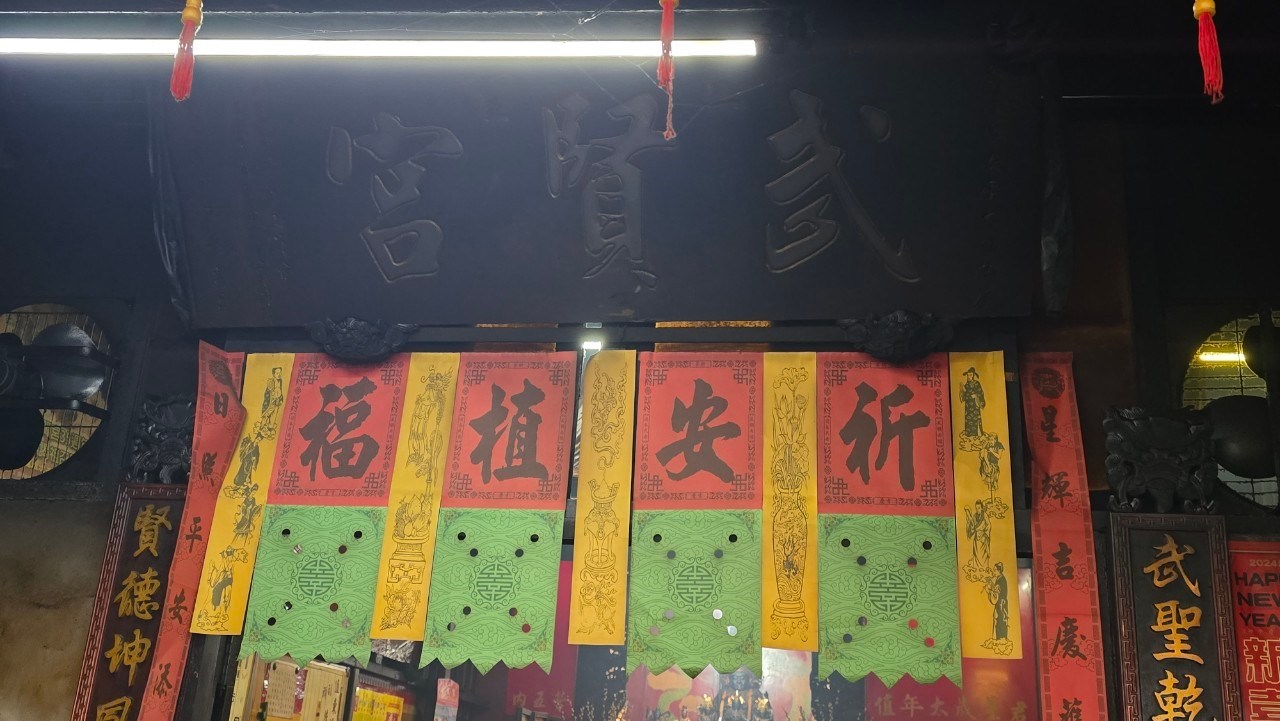 武賢宮
祈安植福
星輝吉慶
日照平安添
武聖乾
賢德坤
2024
HAPPY
NEW
YEAR
新